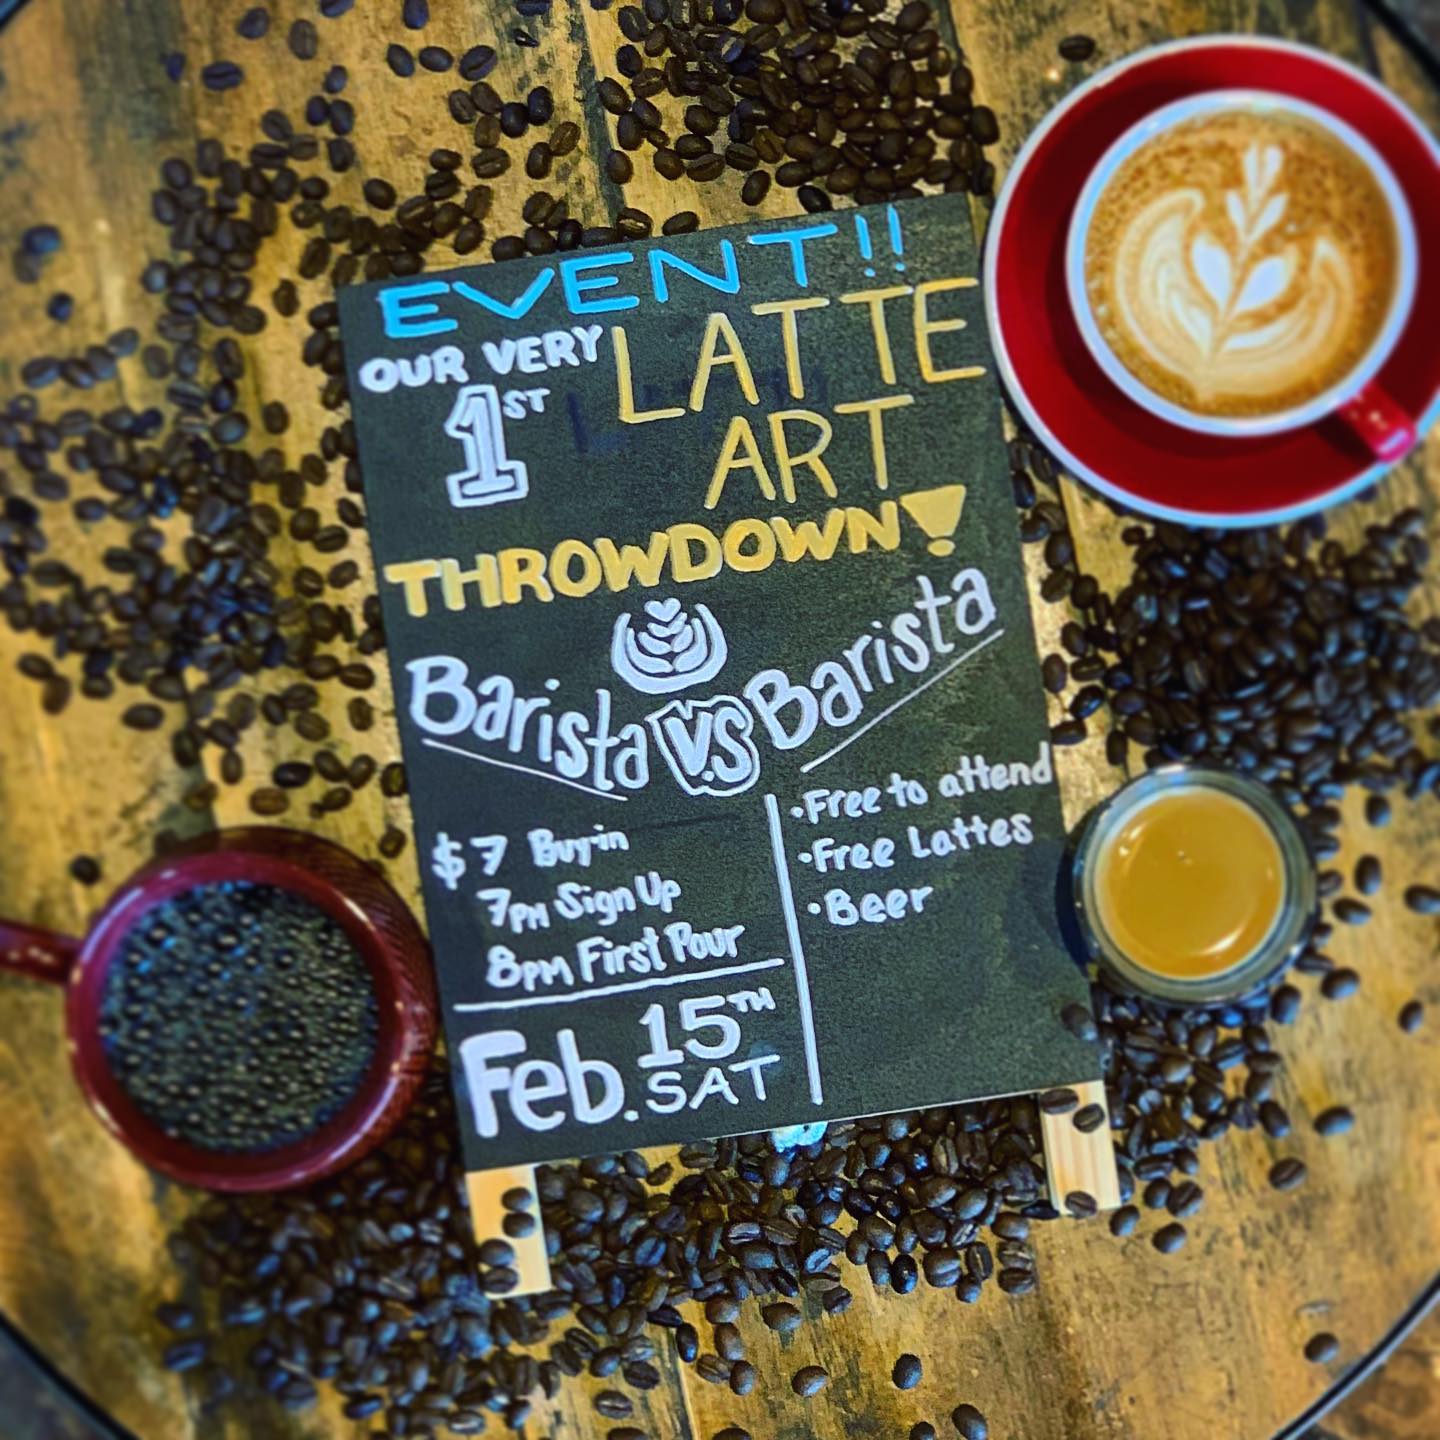 EVENT!!
OUR VERY
1ST
LATTE
ART
THROWDOWN!
Barista V.S Barista
$7 Buyin
7PM Sign Up
8PM First Pour
Feb. 15TH
SAT
• Free to attend
• Free Lattes
• Beer